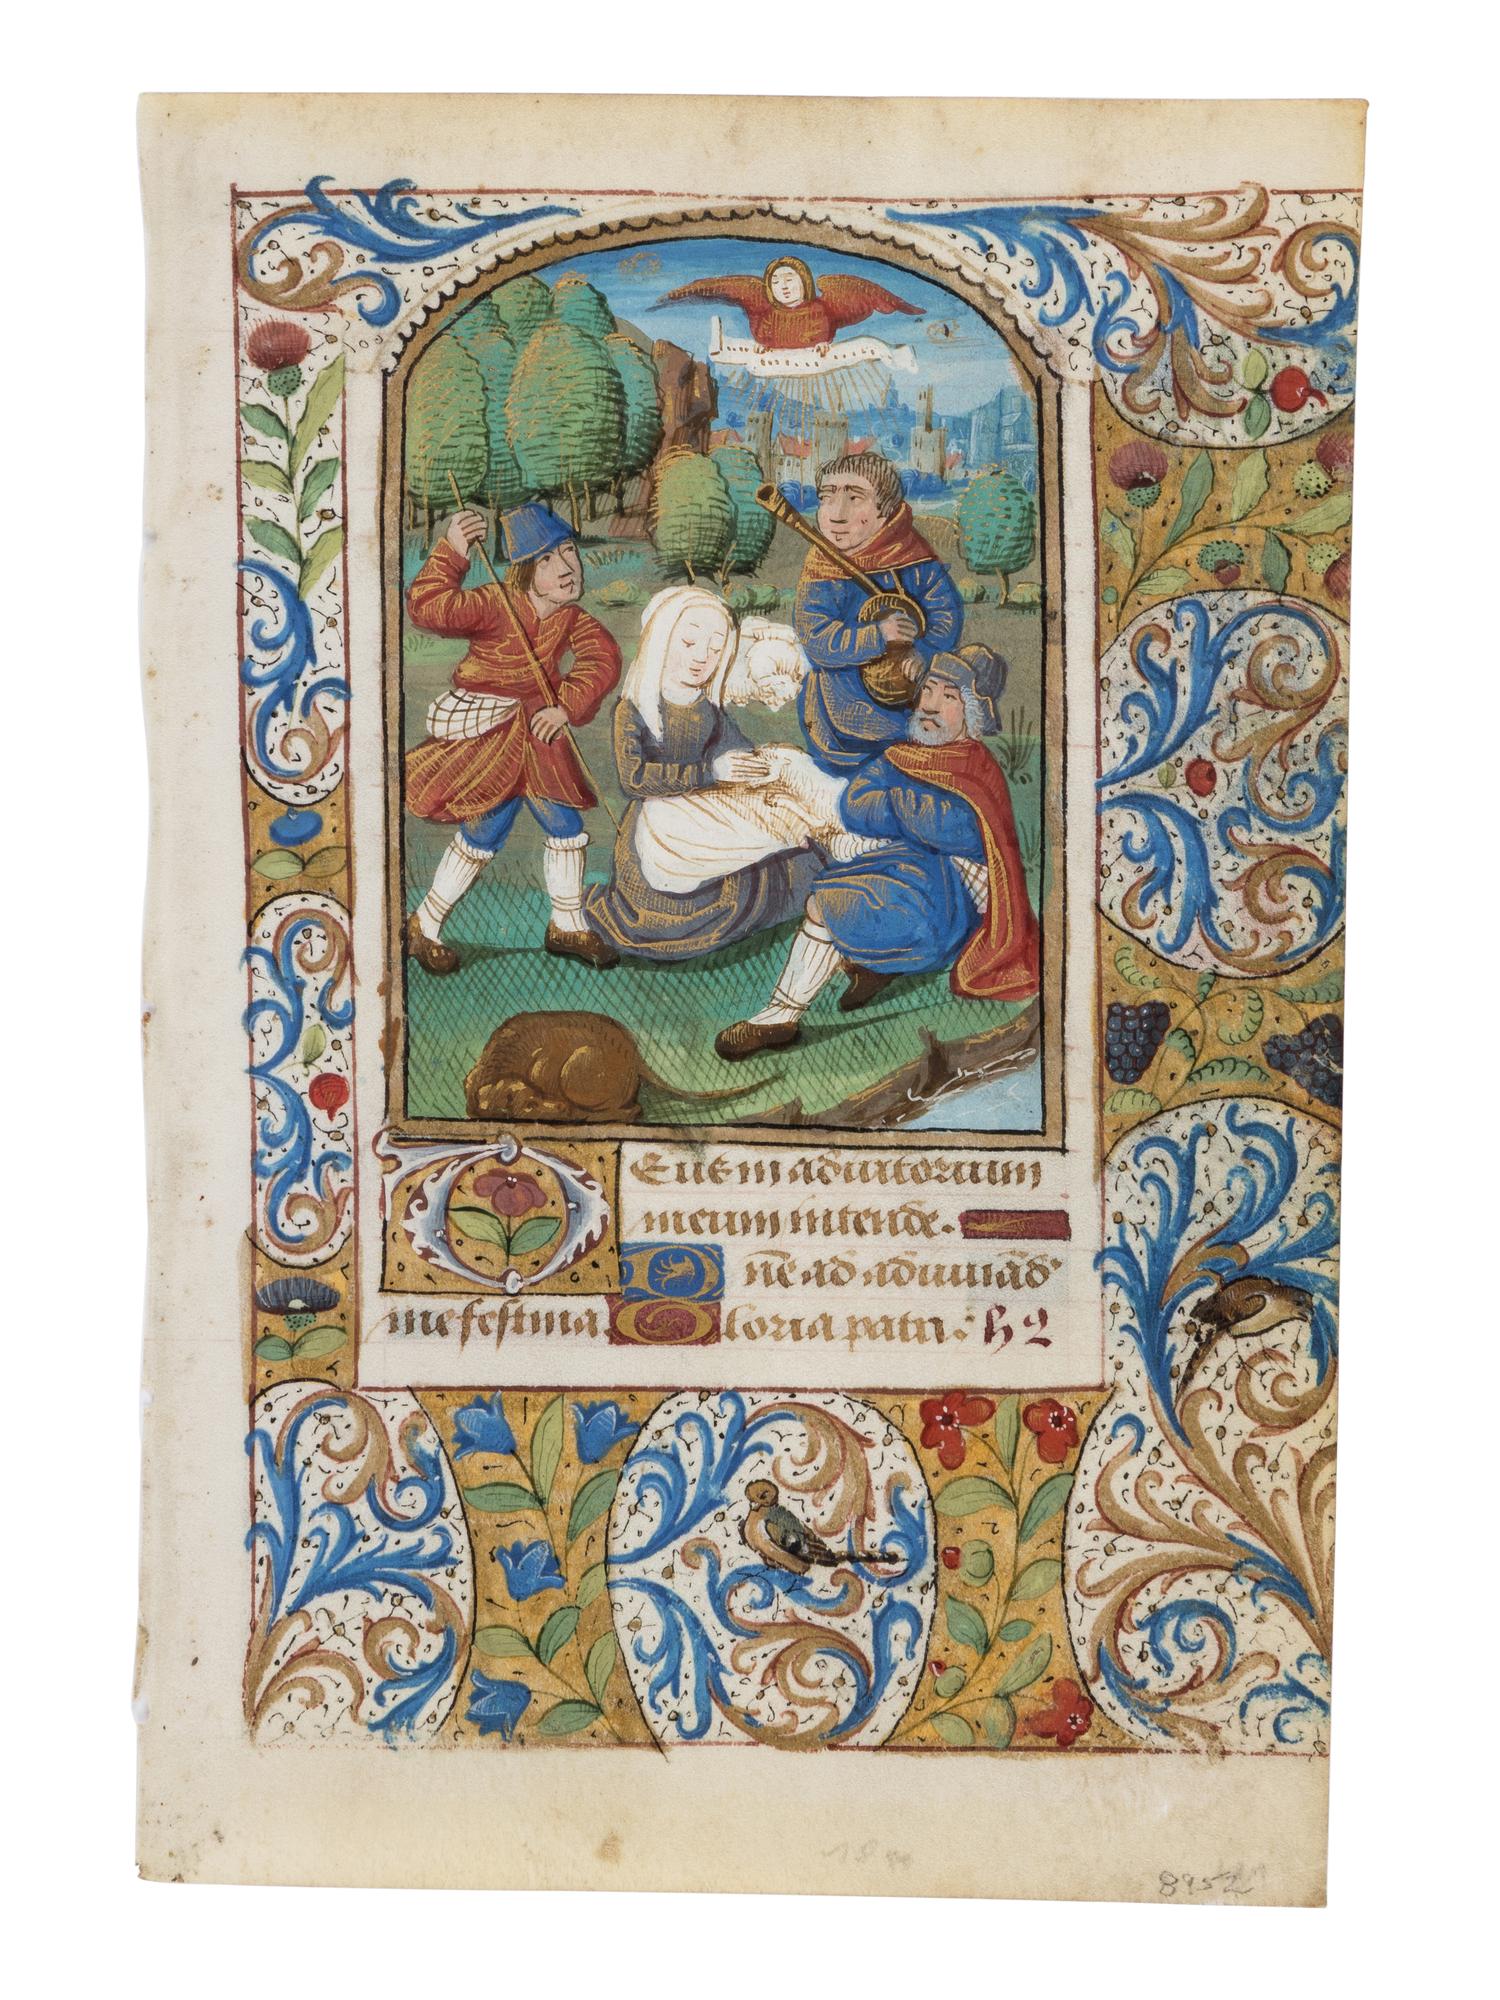 Deus in adiutorium
meum intende.
Dñe ad adiuuãd'
me festina. Gloria patri.
8952